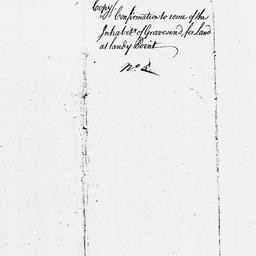 Copy.
Confirmation to some of the
Inhabits. of Gravesend, for Land
at Sandy Point
No.